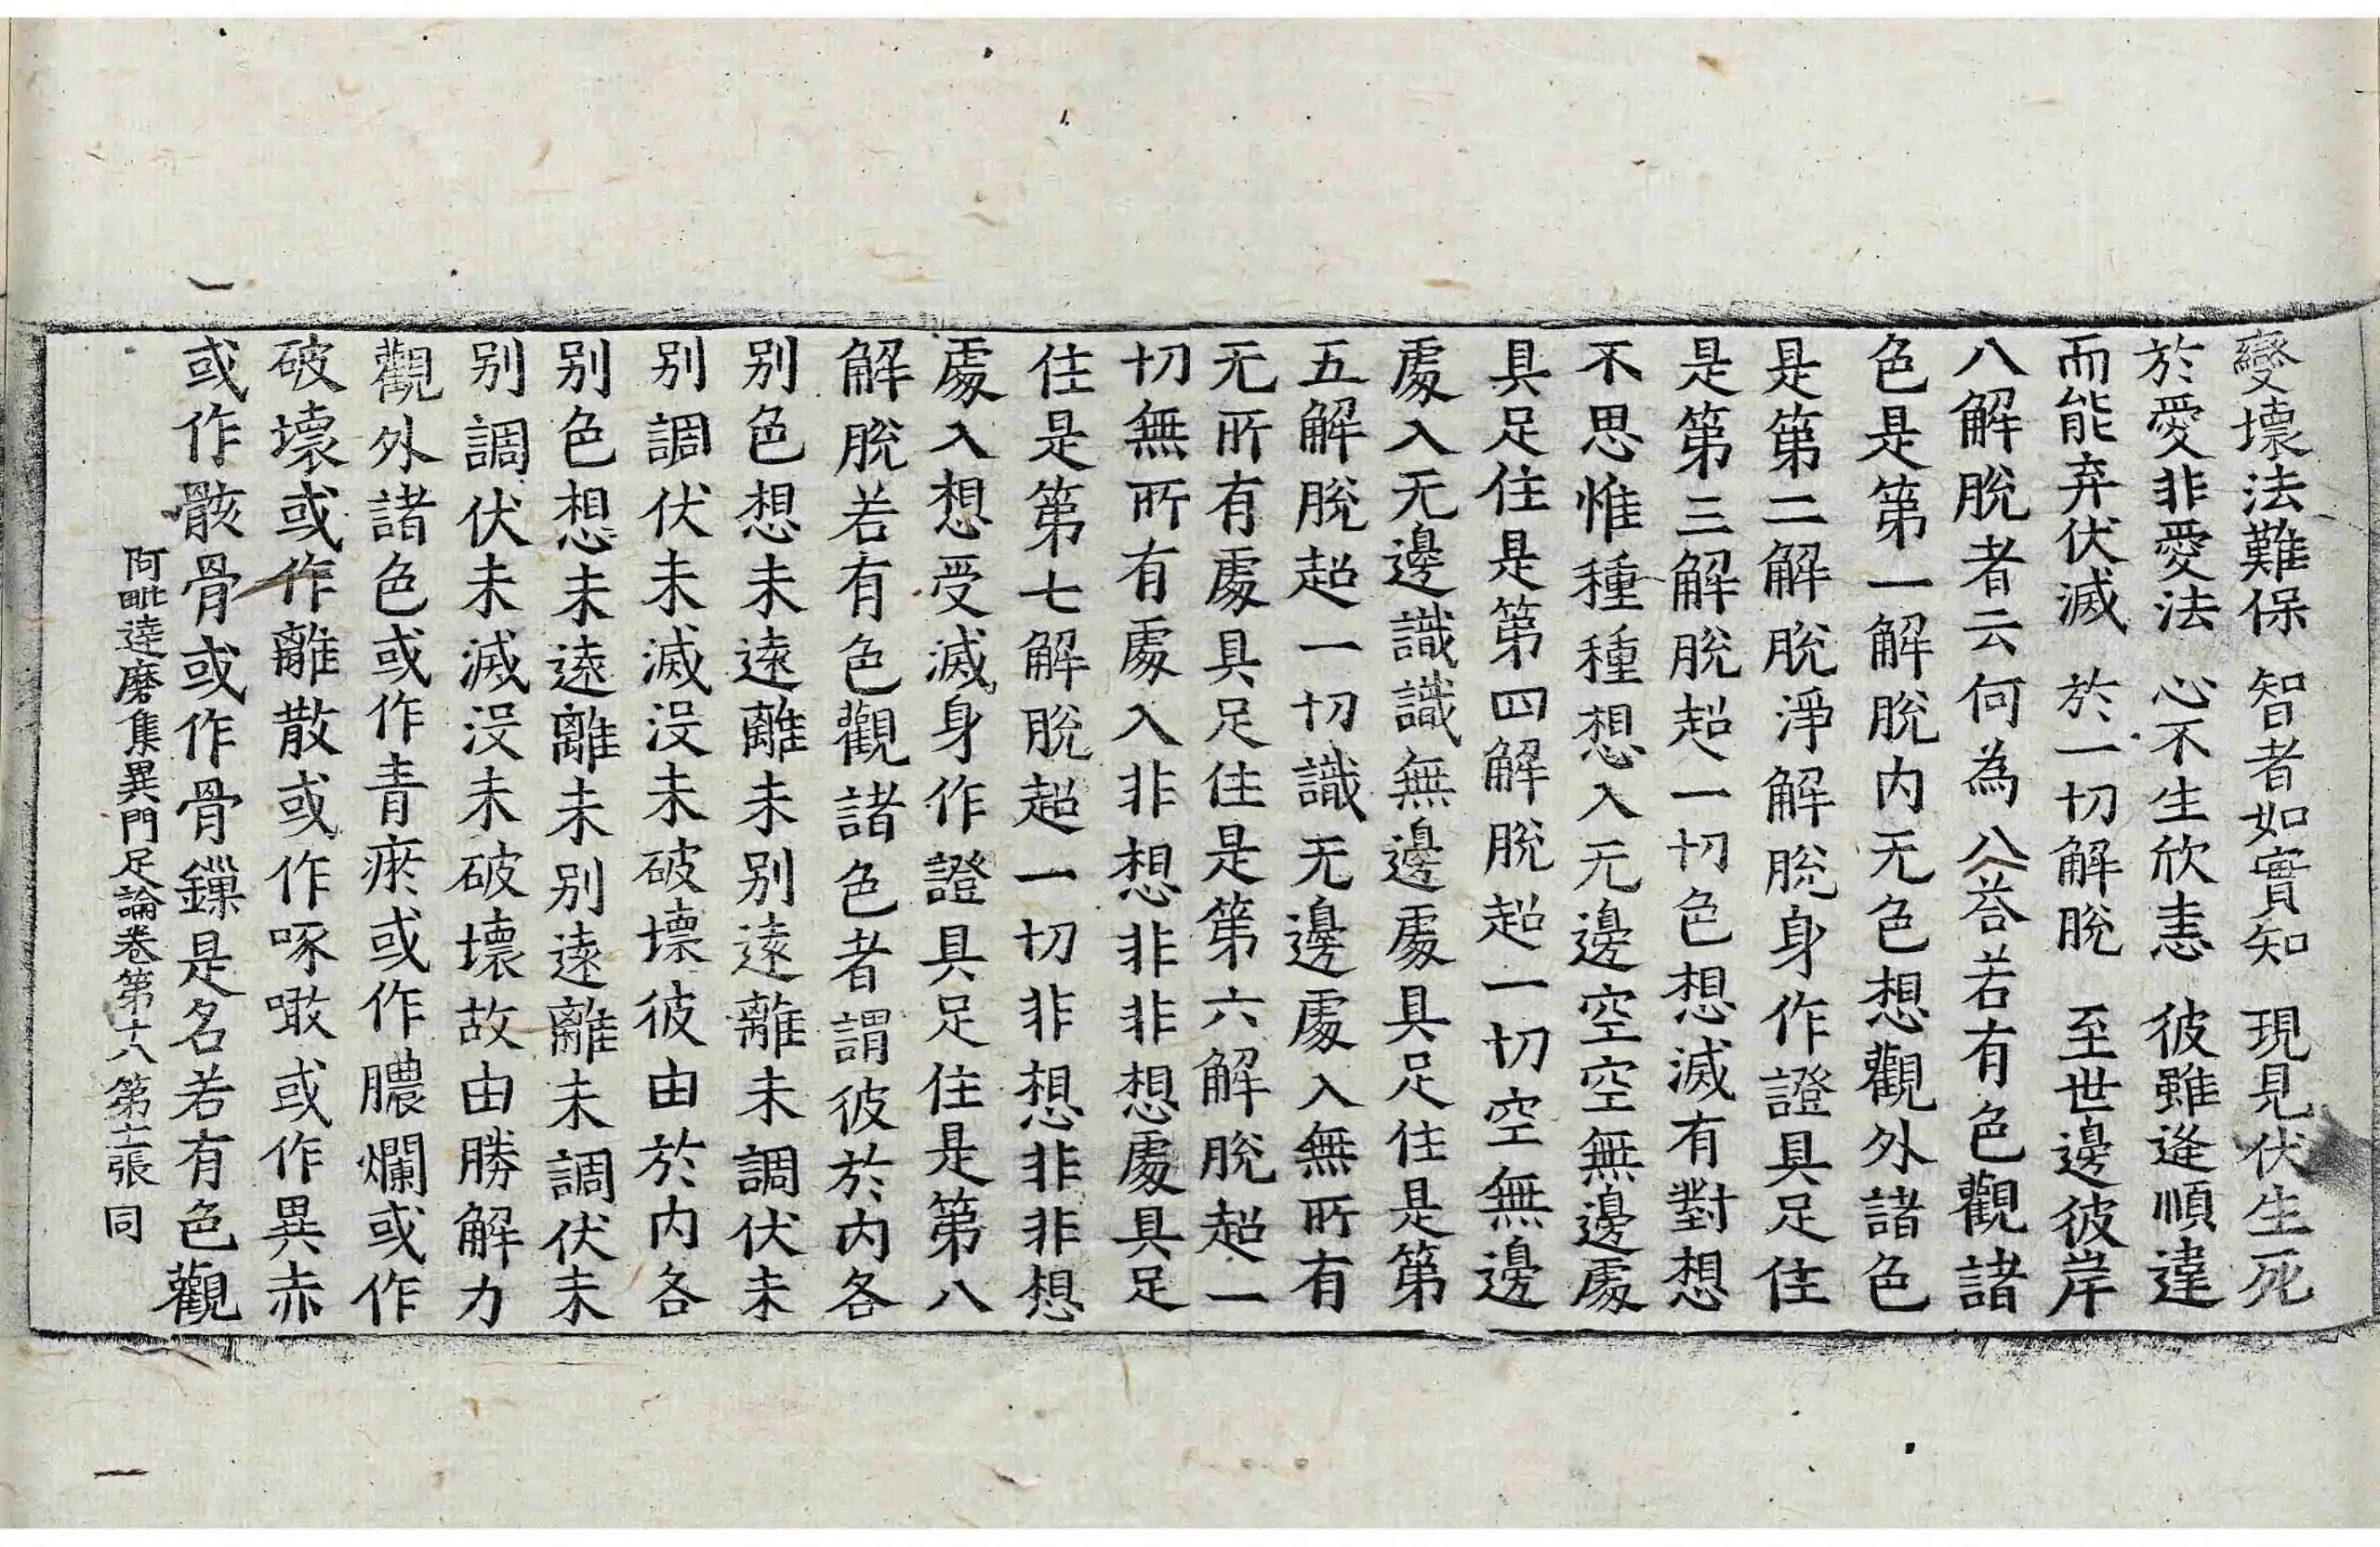 變壞法難保 智者如實知 現見伏生死
於愛非愛法 心不生欣恚 彼雖逢順違
而能弃伏滅 於一切解脫 至世邊彼岸
八解脫者云何為八荅若有色觀諸
色是第一解脫内无色想觀外諸色
是第二解脫淨解脫身作證具足住
是第三解脫超一切色想滅有對想
不思惟種種想入无邊空空無邊處
具足住是第四解脫超一切空無邊
處入无邊識識無邊處具足住是第
五解脫超一切識无邊處入無所有
无所有處具足住是第六解脫超一
切無所有處入非想非非想處具足
住是第七解脫超一切非想非非想
處入想受滅身作證具足住是第八
解脫若有色觀諸色者謂彼於内各
别色想未遠離未别遠離未調伏未
别調伏未滅沒未破壞彼由於内各
别色想未遠離未别遠離未調伏未
别調伏未滅沒未破壞故由勝解力
觀外諸色或作青瘀或作膿爛或作
破壞或作離散或作啄噉或作異赤
或作骸骨或作骨鏁是名若有色觀
阿毗達磨集異門足論卷第十八 第十二張 同